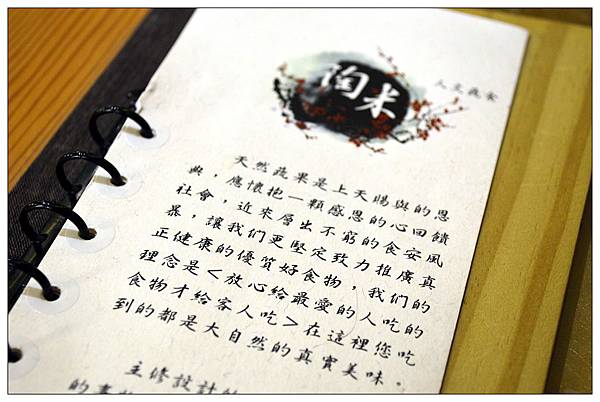 淘米
人文蔬食
天然蔬果是上天賜與的恩
典，應懷抱一顆感恩的心回饋
社會，近來層出不窮的食安風
暴，讓我們更堅定致力推廣真
正健康的優質好食物，我們的
理念是＜放心給最愛的人吃的
食物才給客人吃＞在這裡您吃
到的都是大自然的真實美味。
主修設計的